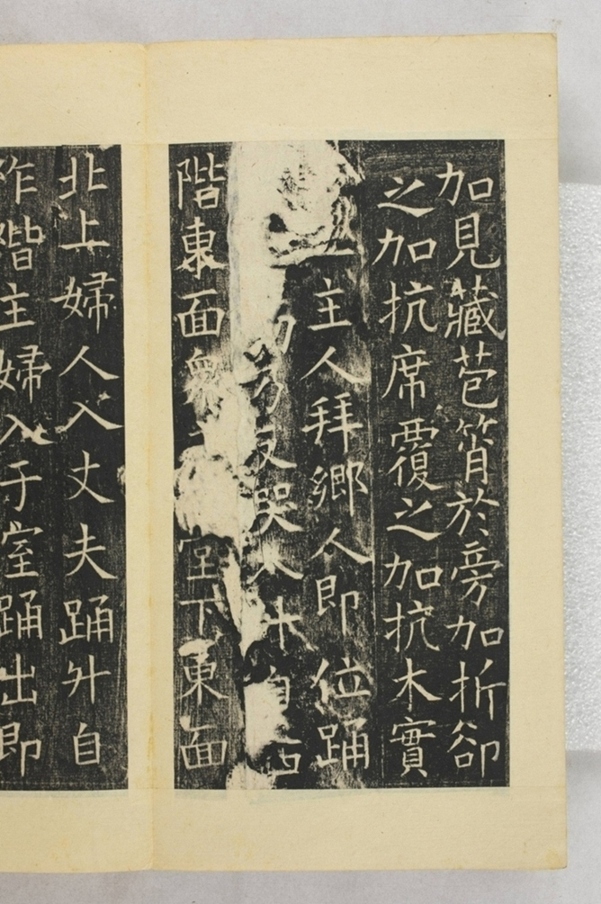 加見藏苞筲於旁加折卻
之加抗席覆之加抗木實
主人拜鄉人即位踊
乃反哭入升自西
階東面眾堂下東面
北上婦人入丈夫踊升自
阼階主婦入于室踊出即